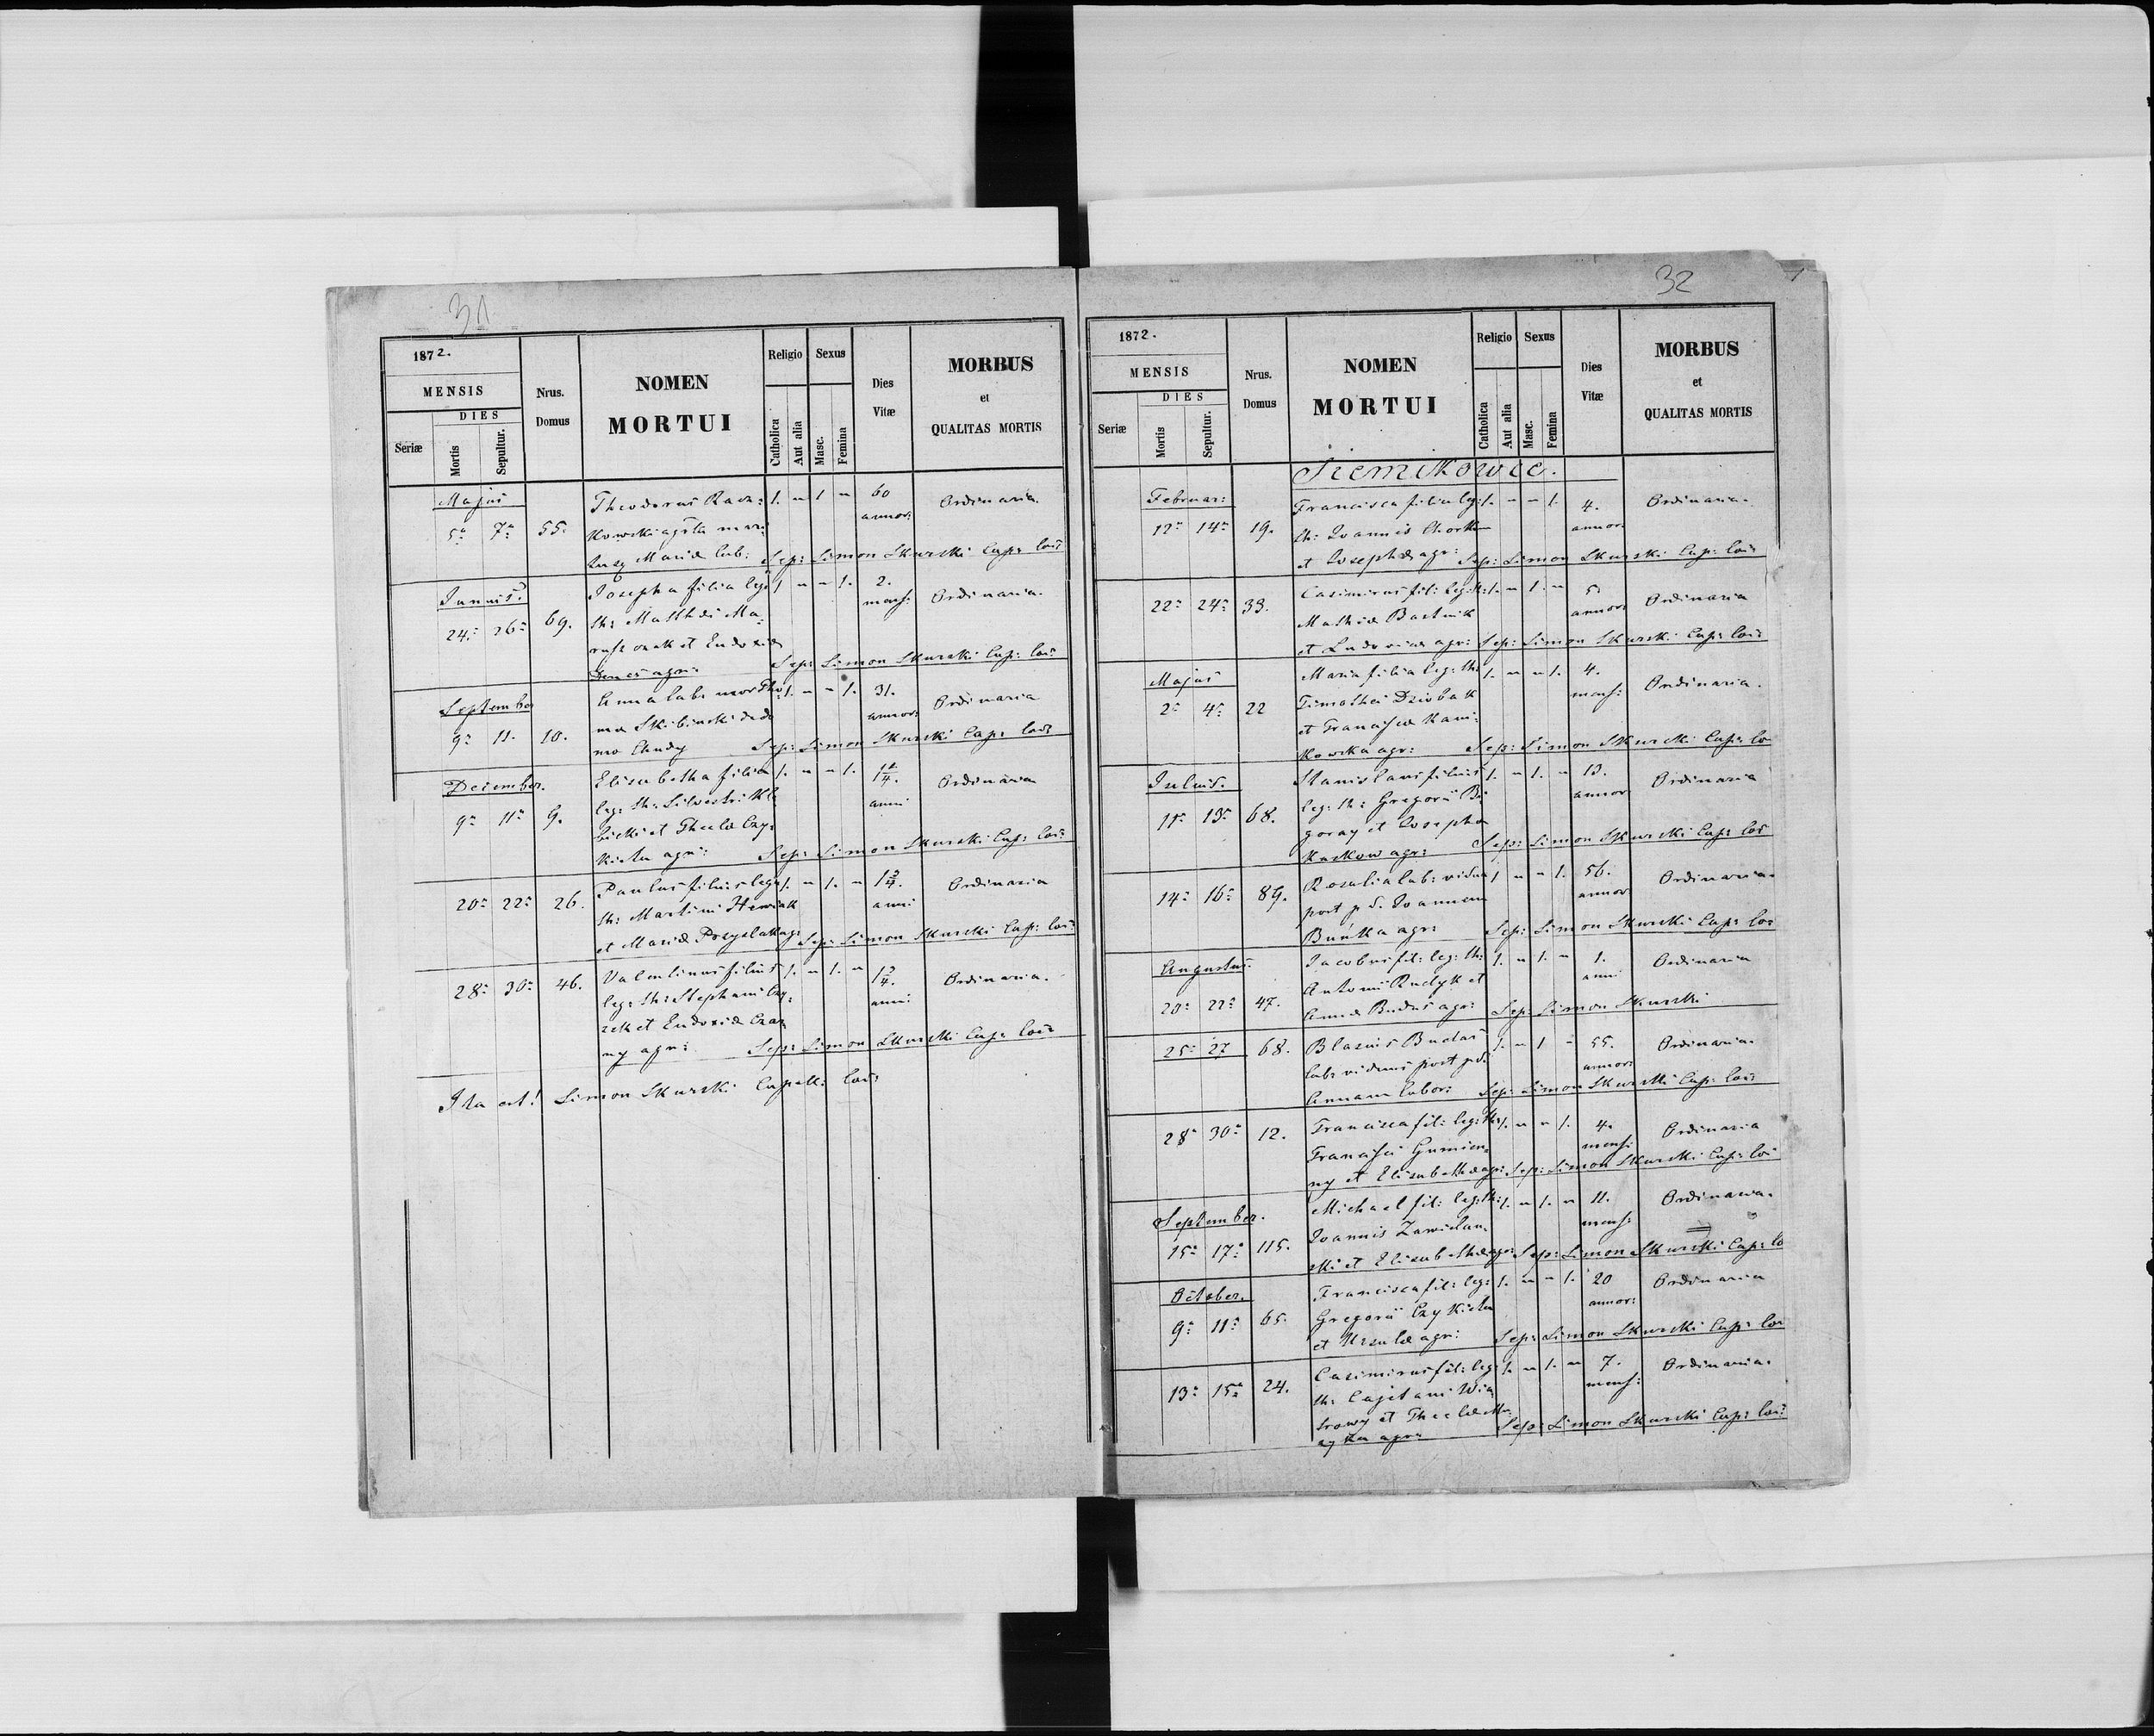 31
1872.
MENSIS
DIES
Seriæ
Mortis
Sepultur.
Nrus.
Domus
NOMEN
MORTUI
Religio
Catholica
Aut alia
Sexus
Masc.
Femina
Dies
Vitæ
MORBUS
et
QUALITAS MORTIS
Majus
5a 7a 55. Theodorus Racz: 1. - 1 - 60 annor: Ordinaria.
kowski mari:
tus Mariæ lab: Sep: Simon Skurski Cap: loci
Junius.
24: 26: 69. Josepha filia leg: 1 - - 1. 2. mens: Ordinaria.
th: Matthæi Ma:
et Eudoxiæ
agr: Sep: Simon Skurski Cap: loci
September
9: 11. 10. Anna lab: uxor Tho: 1. - - 1. 31. annor: Ordinaria
mæ Skibinski de do
mo Chudy Sep: Simon Skurski Cap: loci
December.
9: 11: 9. Elisabetha filia 1. - - 1. anni Ordinaria
leg: th: Silvestri
bicki et Theclæ Czy:
kieta agr: Sep: Simon Skurski Cap: loci
20: 22: 26. Paulus filius leg: 1. - 1. - 1 3/4. anni Ordinaria
th: Martini
et Mariæ Przyslak agr: Sep: Simon Skurski Cap: loci
28: 30: 46. Valentinus filius 1. - 1. - 1 3/4. anni: Ordinaria.
leg: th: Stephani Czy:
et Eudoxiæ Czar
ny agr: Sep: Simon Skurski Cap: loci
Ita est! Simon Skurski Capell: loci
32
1872.
MENSIS
DIES
Seriæ
Mortis
Sepultur.
Nrus.
Domus
NOMEN
MORTUI
Religio
Catholica
Aut alia
Sexus
Masc.
Femina
Dies
Vitæ
MORBUS
et
QUALITAS MORTIS
Siemikowce.
Februar:
12: 14: 19. Francisca filia leg: 1. - - 1. 4. annor: Ordinaria.
th: Joannis
et Josephæ agr: Sep: Simon Skurski Cap: loci
22: 24: 33. Casimirus fil: leg: th: 1. - 1. - 5 annor: Ordinaria
Mathiæ Bartnik
et Ludovicæ agr: Sep: Simon Skurski Cap: loci
Majus
2: 4: 22 Maria filia leg: th: 1. - - 1. 4. mens: Ordinaria.
Timothei Dziobak
et Franciscæ Kani:
kowska agr: Sep: Simon Skurski Cap: lo
Julius.
11: 13: 68. Stanislaus filius 1. - 1. - 13. annor: Ordinaria
leg: th: Gregorii Bi
goray et Josepha
Kuzkow agr: Sep: Simon Skurski Cap: loc
14: 16: 89. Rosalia lab: vidua 1 - - 1. 56. annor: Ordinaria.
post p. d. Joannem
Buńka agr: Sep: Simon Skurski Cap: loc
Augustus.
20: 22: 47. Jacobus fil: leg: th: 1. - 1. - 1. anni Ordinaria
Antonii Rudyk et
Annæ Buduś agr: Sep: Simon Skurski
25: 27 68. Blasius Budaś 1. - 1 - 55. annor: Ordinaria.
lab: viduus post p. d.
Annam labor: Sep: Simon Skurski Cap: loci
28: 30: 12. Francisca fil: leg: th: 1. - - 1. 4. mens: Ordinaria
Francisci Gumien:
ny et Elisabethæ agr: Sep: Simon Skurski Cap: loc
September.
15: 17: 115. Michael fil: leg: th: 1. - 1. - 11. mens: Ordinaria.
Joannis Zawislan:
ski et Elisabethæ agr: Sep: Simon Skurski Cap: lo
October.
9: 11: 65. Francisca fil: leg: 1. - - 1. 20 annor: Ordinaria
Gregorii Czykieta
et Ursulæ agr: Sep: Simon Skurski Cap: loc
13: 15: 24. Casimirus fil: leg: 1. - 1. - 7. mens: Ordinaria.
th: Cajetani Wia
trowy et Theclæ Mu:
zyka agr: Sep: Simon Skurski Cap: loci